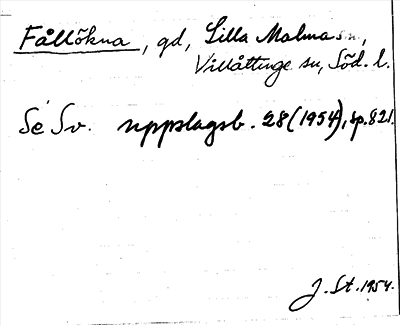 Fållökna, gd, Lilla Malma sn,
Villåttinge su, Söd. l.
Se Sv. uppslagsb. 28 (1954), sp. 821.
J. St. 1954.